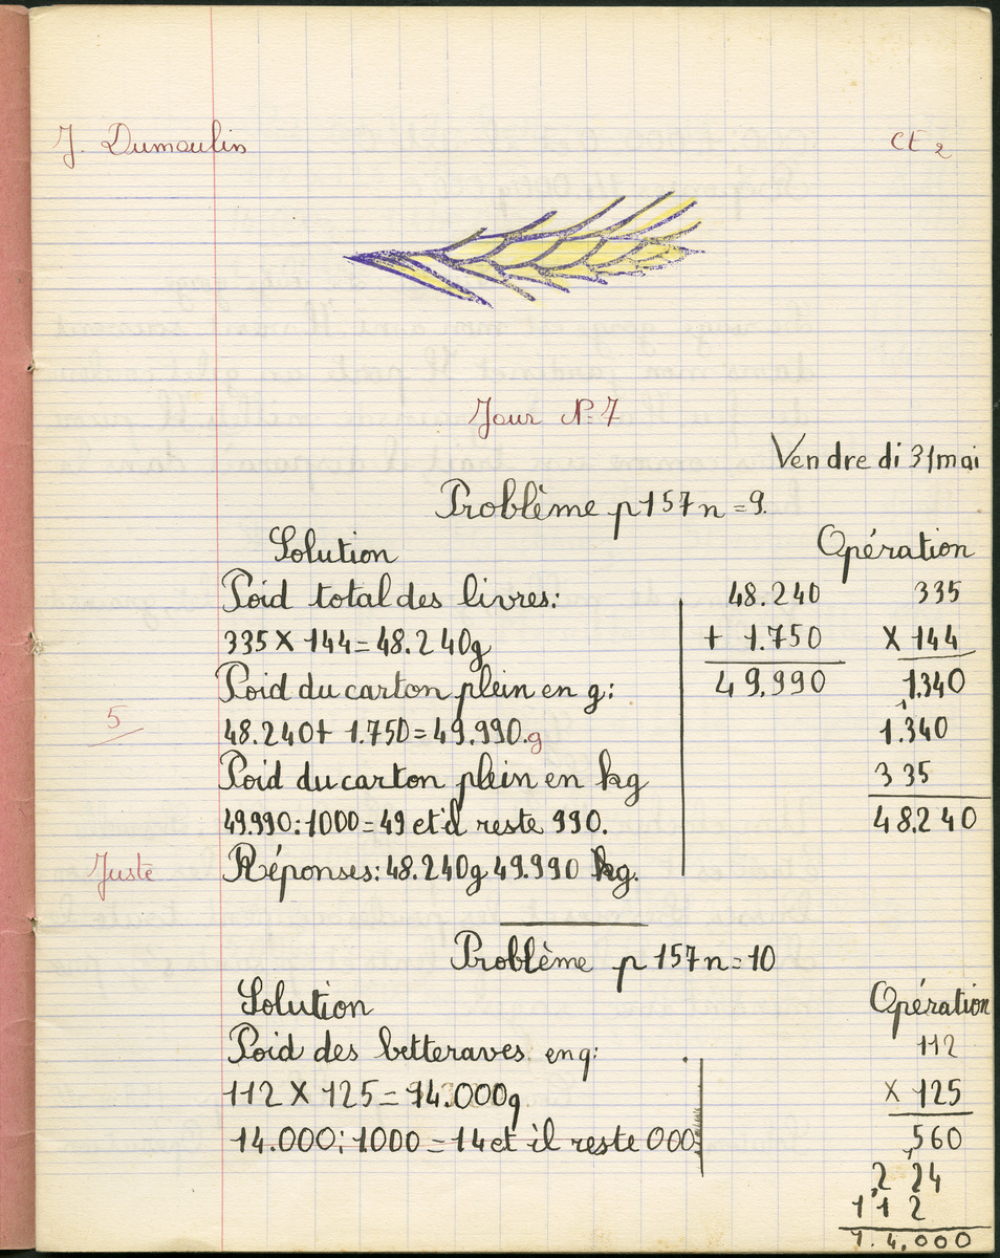 J. Dumoulin
CE 2
Jour N° 7
Vendre di 31 mai
Problème p 157 n = 9.
Solution
Opération
Poid total des livres:
335 X 144 = 48.240g
Poid du carton plein en g:
48.240 + 1.750 = 49.990.g
Poid du carton plein en kg
49.990 : 1000 = 49 et il reste 990.
Réponses: 48.240g 49.990 kg.
5
Juste
48.240
+ 1.750
49.990
335
X 144
1.340
1.340
335
48.240
Problème p 157 n = 10
Solution
Opération
Poid des betteraves en g:
112 X 125 = 14.000g
14.000 : 1000 = 14 et il reste 000
112
X 125
560
2 24
1 1 2
1.4.000